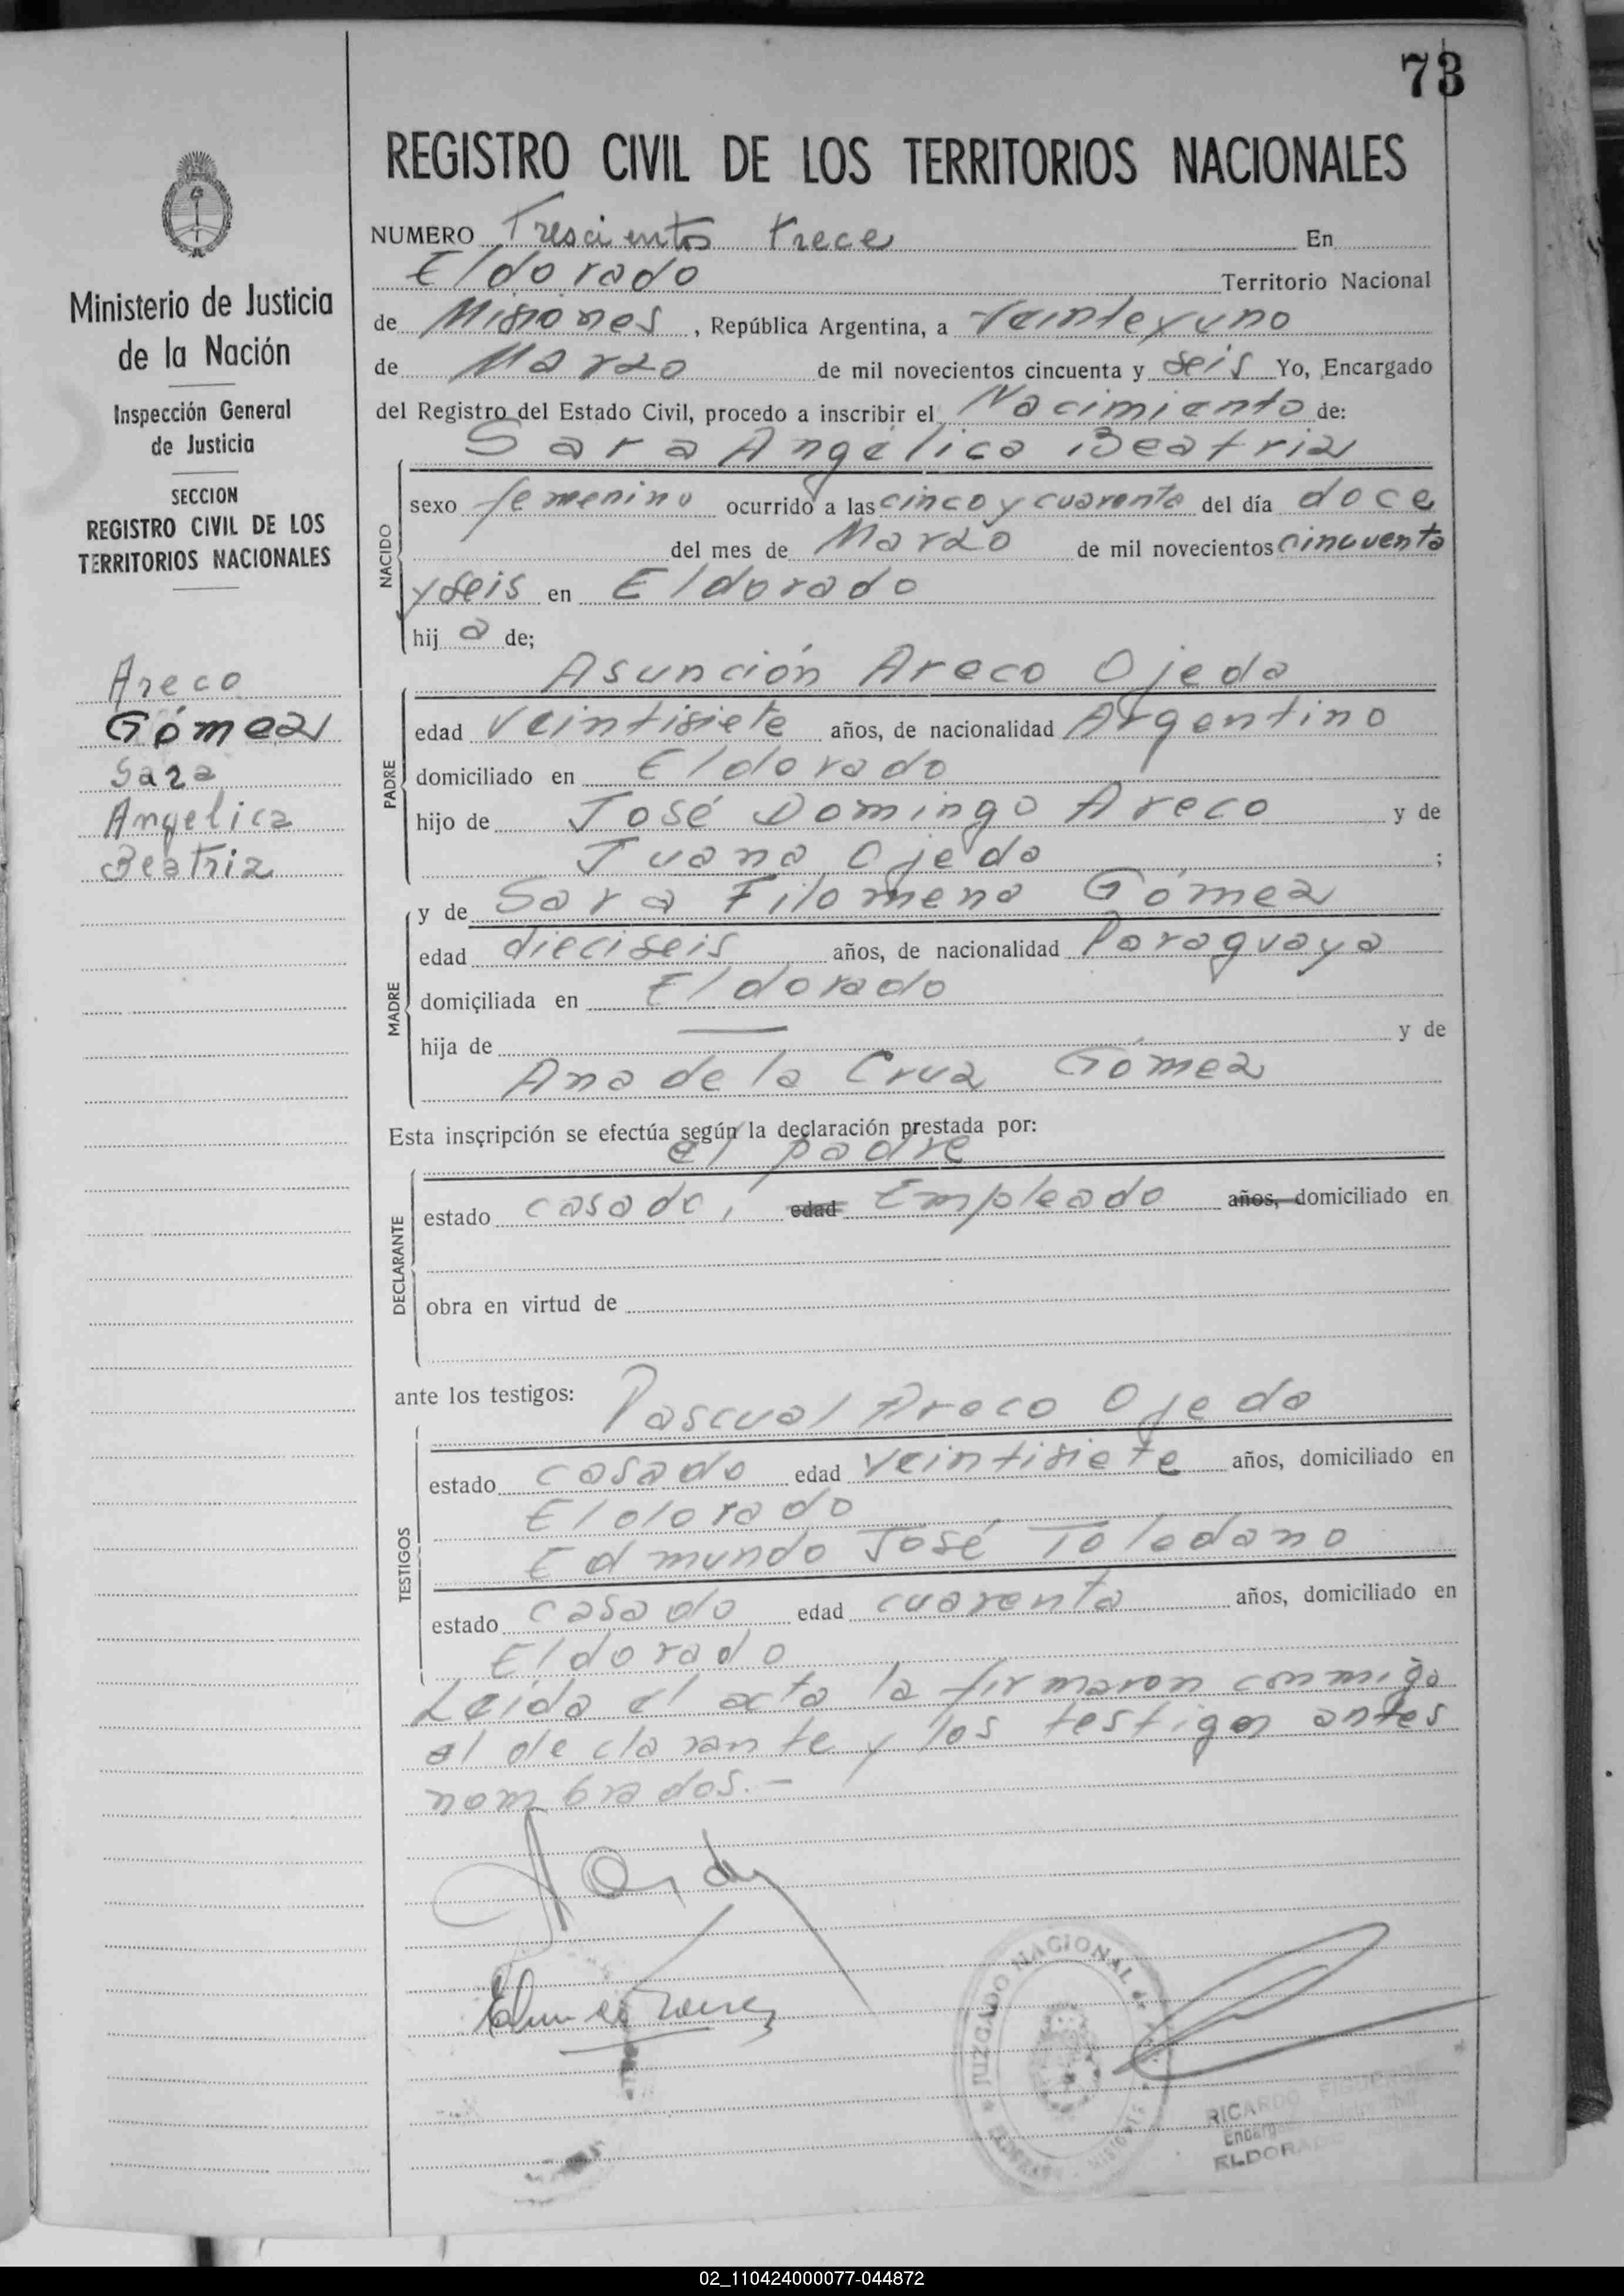 73
REGISTRO CIVIL DE LOS TERRITORIOS NACIONALES
Ministerio de Justicia
de la Nación
Inspección General
de Justicia
SECCION
REGISTRO CIVIL DE LOS
TERRITORIOS NACIONALES
Areco
Gómez
Sara
Angelica
Beatriz
NUMERO Trescientos trece En
Eldorado Territorio Nacional
de Misiones, República Argentina, a Veinteyuno
de Marzo de mil novecientos cincuenta y seis Yo, Encargado
del Registro del Estado Civil, procedo a inscribir el Nacimiento de:
Sara Angélica Beatriz
NACIDO
sexo femenino ocurrido a las cinco y cuarenta del día doce
del mes de Marzo de mil novecientos cincuenta
y seis en Eldorado
hij a de;
Asunción Areco Ojeda
PADRE
edad veintisiete años, de nacionalidad Argentino
domiciliado en Eldorado
hijo de José Domingo Areco y de
Juana Ojeda ;
y de Sara Filomena Gómez
MADRE
edad dieciseis años, de nacionalidad Paraguaya
domiciliada en Eldorado
hija de — y de
Ana de la Cruz Gómez
Esta inscripción se efectúa según la declaración prestada por:
el padre
DECLARANTE
estado casado, edad Empleado años, domiciliado en
obra en virtud de
ante los testigos: Pascual Areco Ojeda
TESTIGOS
estado casado edad veintisiete años, domiciliado en
Eldorado
Edmundo José Toledano
estado casado edad cuarenta años, domiciliado en
Eldorado
Leída el acta la firmaron conmigo
el declarante y los testigos antes
nombrados.-
JUZGADO NACIONAL de
ELDORADO - MISIONES
RICARDO FIGUEREDO
Encargado
ELDORADO
02_110424000077-044872